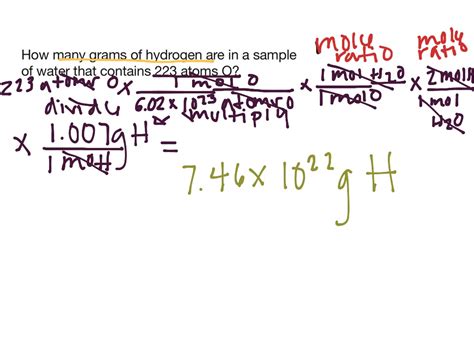 How many grams of hydrogen are in a sample
of water that contains 223 atoms O?
mole ratio
mole ratio
223 atoms O x 1 mol O / 6.02 x 10^23 atoms O x 1 mol H2O / 1 mol O x 2 mol H / 1 mol H2O
divide
multiply
x 1.007g H / 1 mol H =
7.46 x 10^22 g H